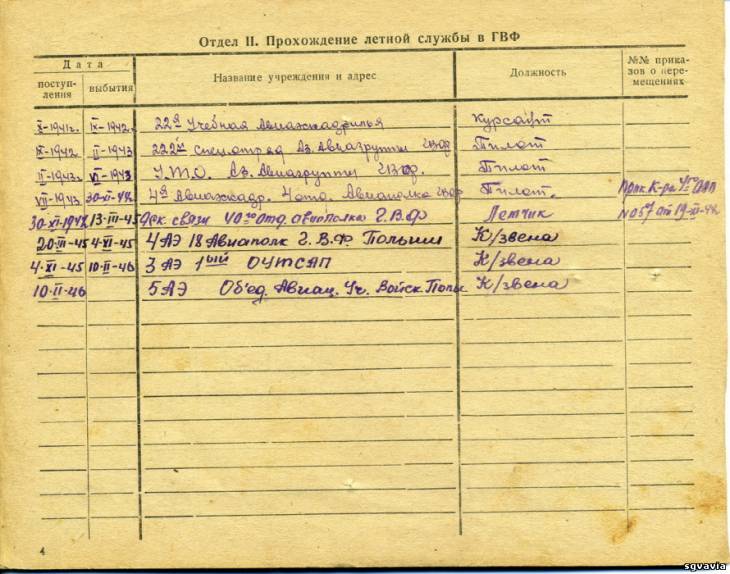 Отдел II. Прохождение летной службы в ГВФ
Дата
поступ-
ления
выбытия
Название учреждения и адрес
Должность
№№ прика-
зов о пере-
мещениях
X-1941г. IX-1942г. 22я Учебная Авиаэскадрилья Курсант
IX-1942 II-1943 222й спецотряд Аз. Авиагруппы ГВФ Пилот
II-1943г. VII-1943 У.Т.О. Аз. Авиагруппы ГВФ. Пилот
VII-1943 30-XI-44 4я Авиаэскадр. 4 отд. Авиаполка ГВФ Пилот.
30-XI-1944 13-III-45 связи 40го отд. авиаполка Г.В.Ф Летчик №057 от 19-XI-44
20-III-45 4-XI-45 4 АЭ 18 Авиаполк Г.В.Ф. Польши К/звена
4-XI-45 10-II-46 3 АЭ 1ый ОУТСАП К/звена
10-II-46 5 АЭ Об'ед. Авиац. Уч. Войск. К/звена
4
sgvavia